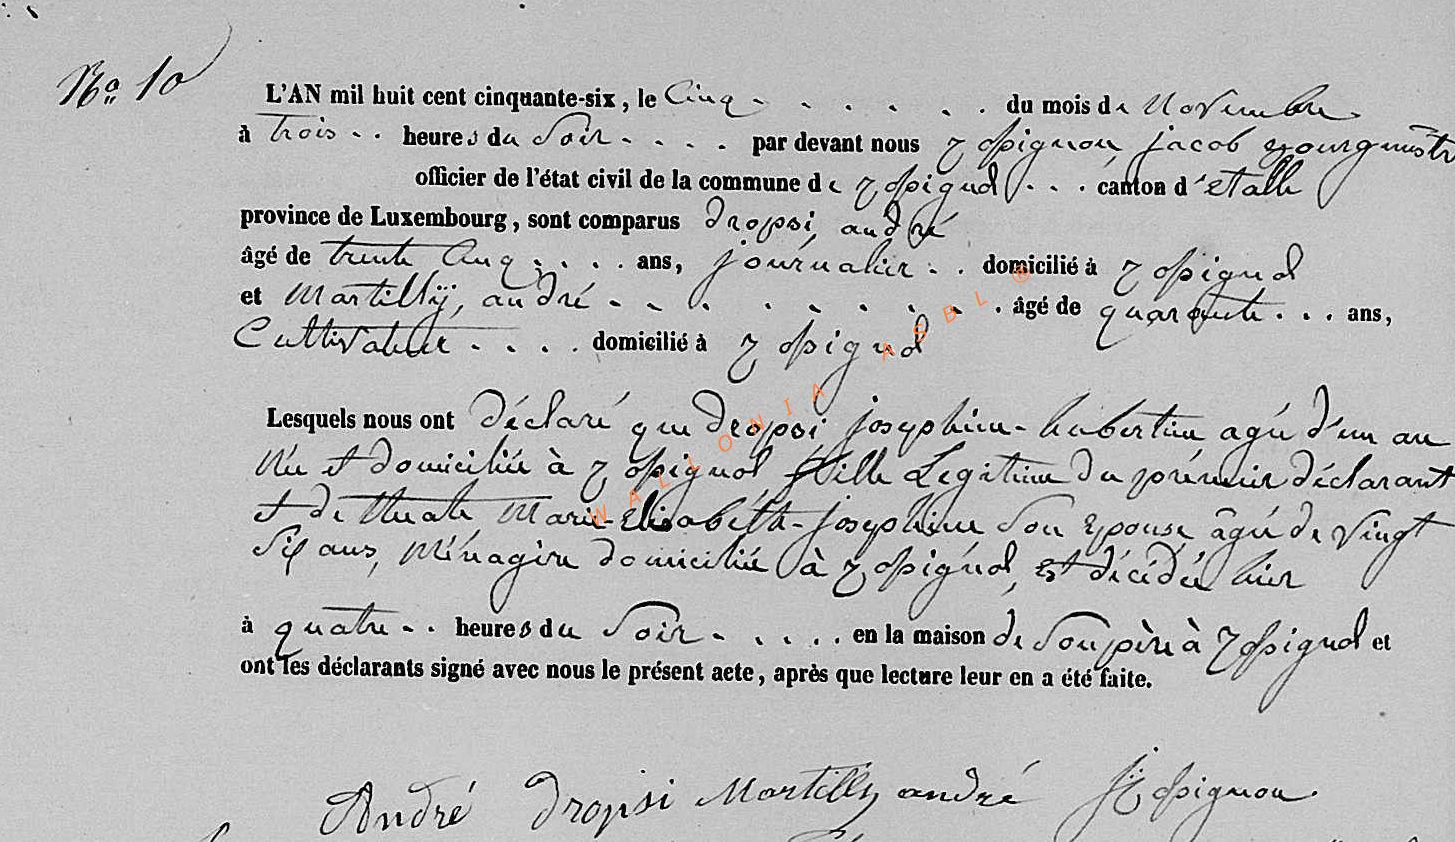 No 10
L'AN mil huit cent cinquante-six, le Cinq - . . . . . du mois de Novembre
à trois - . heures du Soir - . . . par devant nous jacob
officier de l'état civil de la commune de . . . canton d'étalle
province de Luxembourg, sont comparus dropsi, andré
âgé de trente cinq . . . . ans, journalier - . domicilié à
et Martillÿ, andré - - . . . . . . . âgé de quarante . . . ans,
Cultivateur - . . . . domicilié à
Lesquels nous ont déclaré que dropsi, josephine-hubertine agée d'un an
Née et domiciliée à fille Légitime du prémier déclarant
et de Marie-Elisabéth-josephine Son Epouse âgée de vingt
Six ans, Ménagère domiciliée à , Est décédée hier
à quatre - . heures du Soir - . . . . en la maison de Son père à et
ont les déclarants signé avec nous le présent acte, après que lecture leur en a été faite.
André Dropsi Martilly andré
WALLONIA ASBL ®